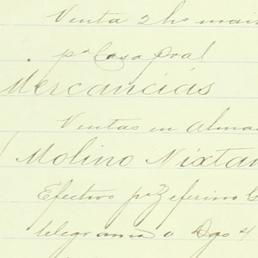 Venta 2 hs maiz
pa Casa Gral
Mercancias
Ventas en Alma
Molino Nixta
Efectivo pr Zeferino G
telegrama a Dgo 4